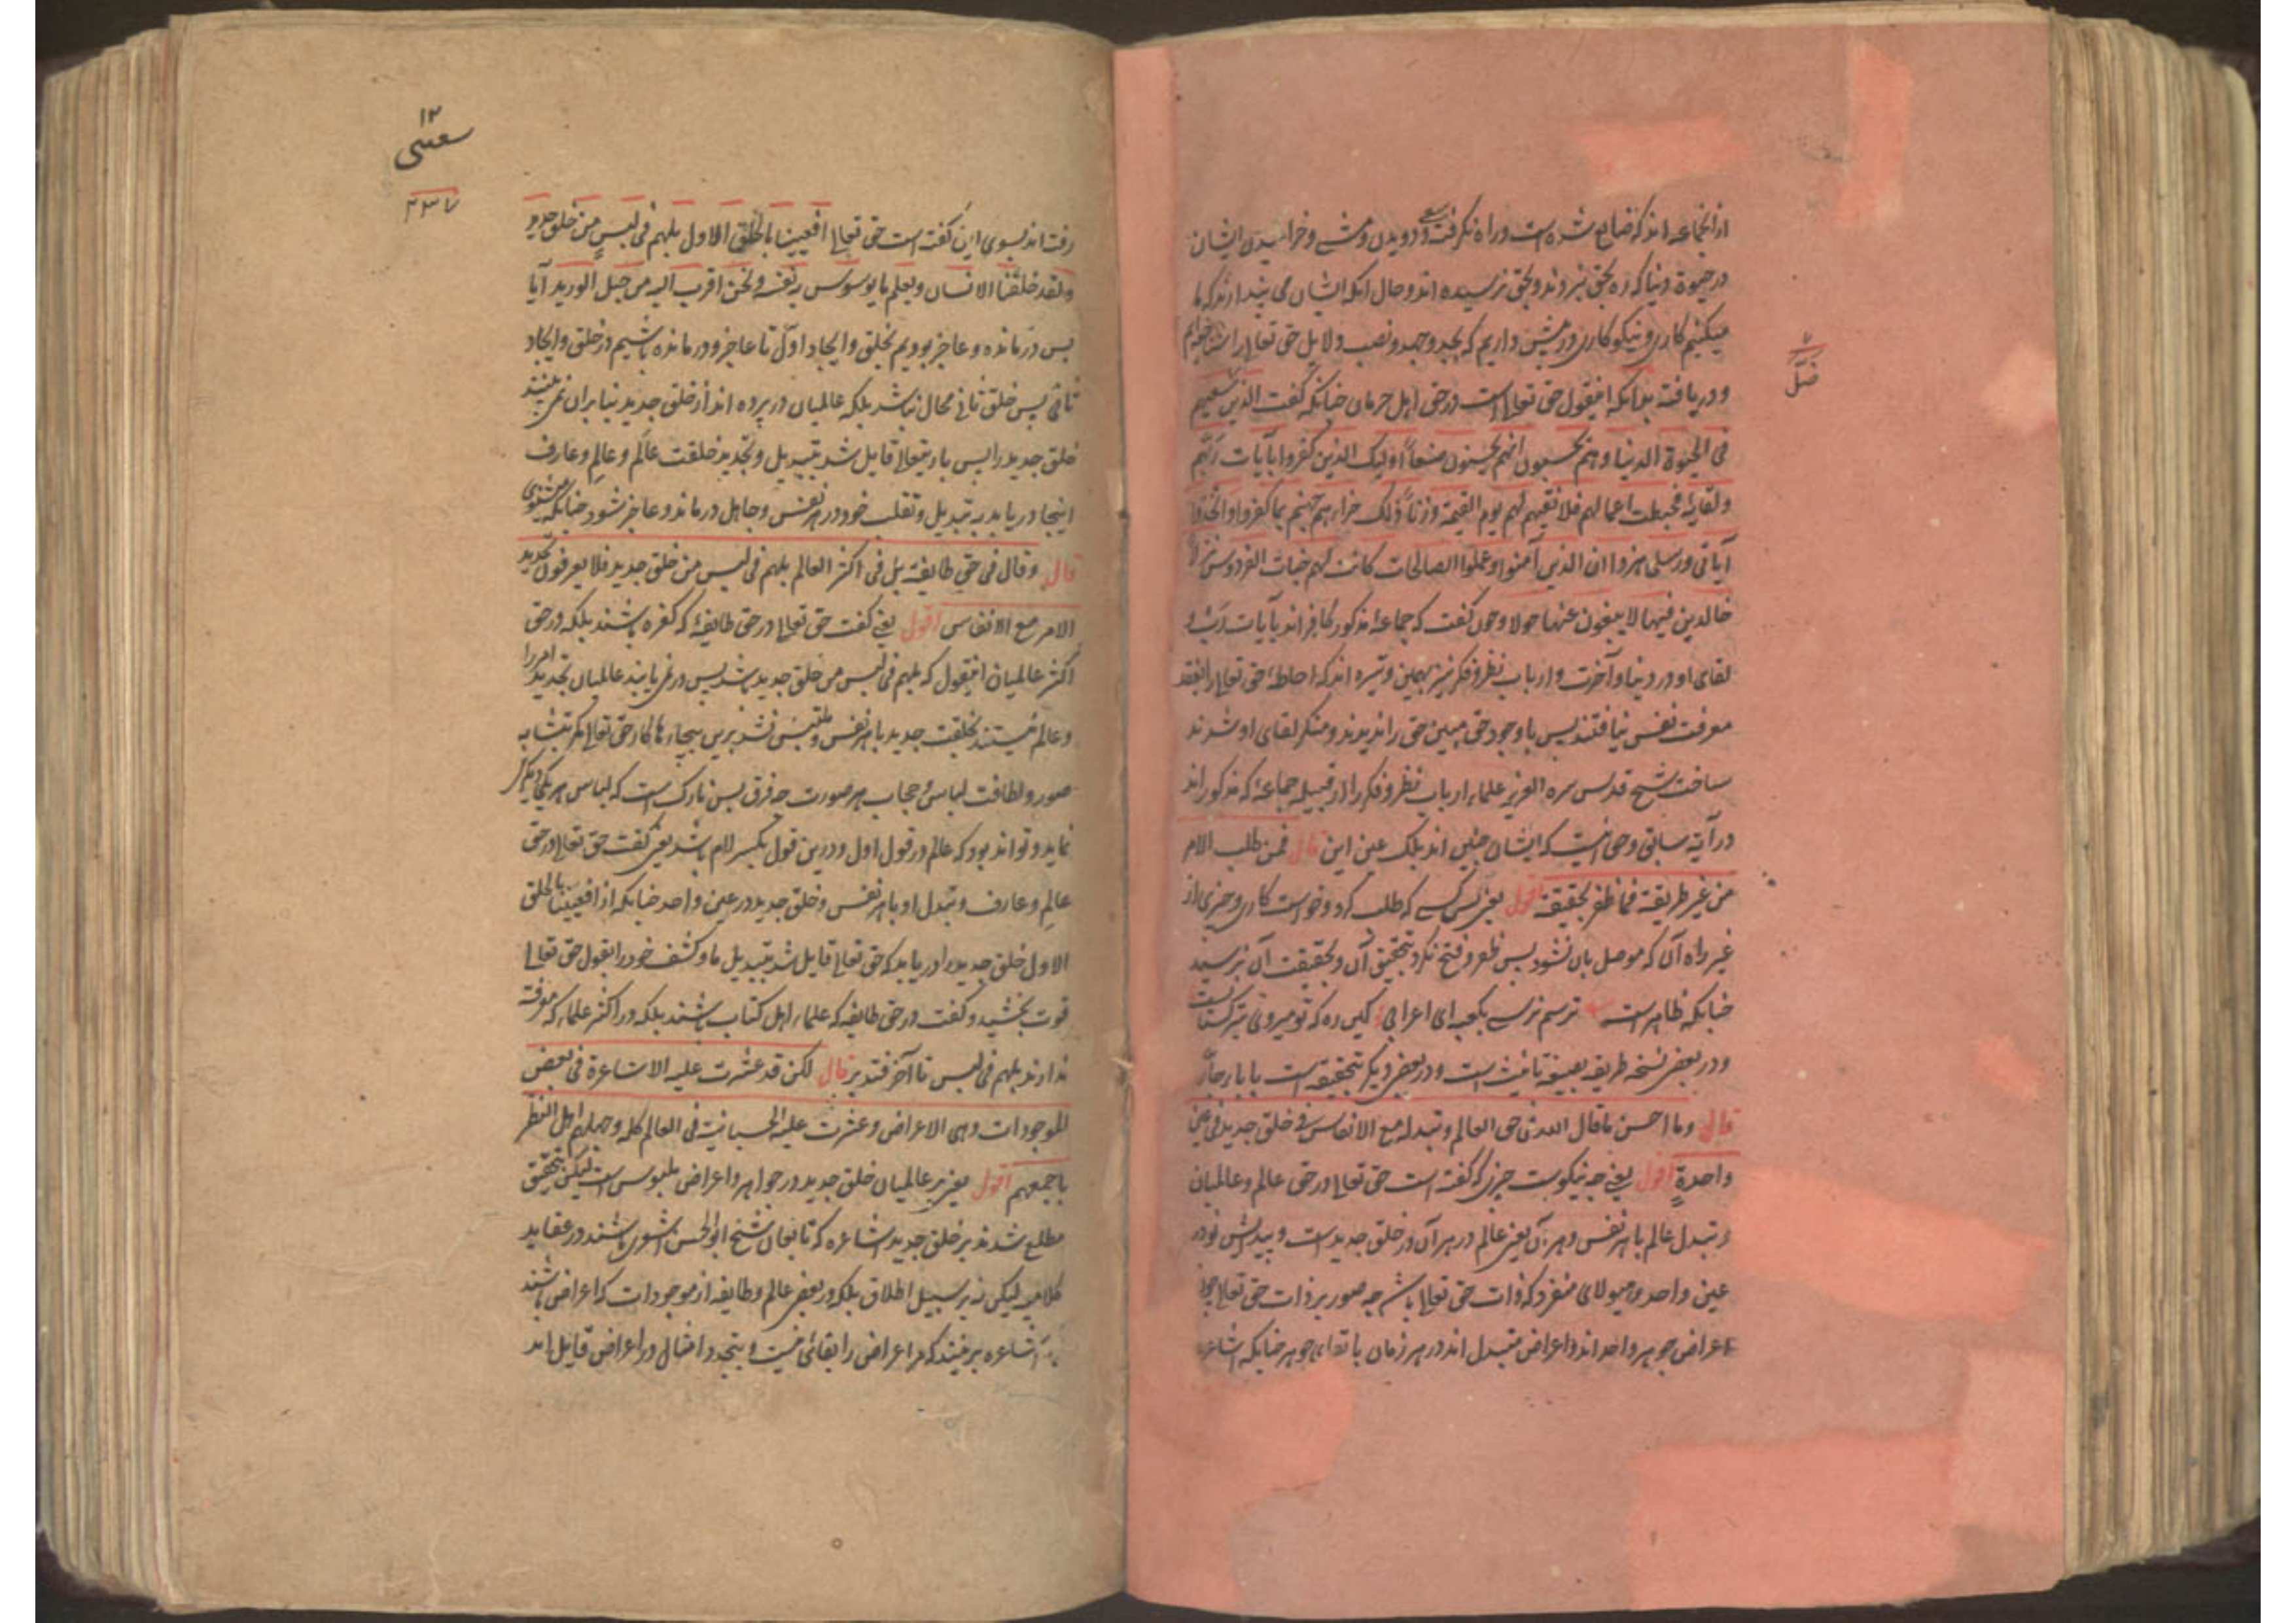 از انجماعه اند که ضایع شده است و راه نگرفت سعی و دویدن و مشے و خرامیدن ایشان
در حیوة دنیا که ره بحق نبردند و بحق نرسیده اند و حال انکه ایشان می پندارند که ما
میکنیم کاری و نیکو کاری در پیش داریم که بجد و جهد و نصب دلایل حق تعالی را شناخته ایم
و دریافته بدانکه اینقول حق تعالی است در حق اهل حرمان چنانکه گفت الذین ضل سعیهم
فی الحیوة الدنیا و هم یحسبون انهم یحسنون صنعاً اولیک الذین کفروا بآیات ربهم
ولقایه فحبطت اعمالهم فلا نقیم لهم یوم القیمة وزناً ذلک جزاءهم جهنم بما کفروا واتخذوا
آیاتی ورسلی هزوا ان الذین آمنوا وعملوا الصالحات کانت لهم جنات الفردوس نزلاً
خالدین فیها لا یبغون عنها حولا و چون گفت که جماعه مذکور کافر اند بآیات رب و
لقای او در دنیا و آخرت و ارباب نظر و فکر نیز بهمین وتیره اند که احاطۀ حق تعالی را بفقد
معرفت نفس نیافتند پس با وجود حق مبین حق را ندیدند و منکر لقای او شدند
ساخت شیخ قدس سره العزیز علماء ارباب نظر و فکر را از قبیله جماعۀ که مذکور اند
در آیه سابق و حق اینست که ایشان چنین اند بلک عین این قال فمن طلب الامر
من غیر طریقه فما ظفر بحقیقه اقول یعنی پس کسے که طلب کرد و خواست کاری و چیزی از
غیر راه آن که موصل بان نشود پس ظفر و فتح نکرد بتحقیق آن و بحقیقت آن نرسید
چنانکه ظاهر است ترسم نرسے بکعبه ای اعرابی کین ره که تو میروی بترکستانست
و در بعض نسخه طریقه بصیغه تانیث است و در بعض دیگر بتحقیقه است با باء جار
قال وما احسن ما قال الله فی حق العالم وتبدله مع الانفاس فی خلق جدید فی عین
واحدةٍ اقول یعنی چه نیکوست چیزی که گفته است حق تعالی در حق عالم و عالمیان
و تبدل عالم با هر نفس و هر آن یعنی عالم در هر آن در خلق جدید است و پیدایش نو در
عین واحد و هیولای منفرد که ذات حق تعالی باشد چه صور بر ذات حق تعالی چون
اعراض جوهر واحد اند و اعراض متبدل اند در هر زمان با بقای جوهر چنانکه اشاعره
ضلّ
۱۲
سعتی
۴۳۷
رفته اند بسوی این گفته است حق تعالی افعیینا بالخلق الاول بل هم فی لبسٍ من خلق جدید
ولقد خلقنا الانسان ونعلم ما یوسوس به نفسه ونحن اقرب الیه من حبل الورید آیا
پس درمانده و عاجز بودیم بخلق و ایجاد اول تا عاجز و درمانده باشیم در خلق و ایجاد
ثانی پس خلق ثانی محال نباشد بلکه عالمیان در پرده اند از خلق جدید بنابران نمی بینند
خلق جدید را پس باریتعالی قایل شد بتبدیل و تجدید خلقت عالَم و عالِم و عارف
اینجا دریابد به تبدیل و تقلب خود در هر نفس و جاهل درماند و عاجز شود چنانکه
قال وقال فی حق طایفة بل فی اکثر العالم بل هم فی لبس من خلق جدید فلا یعرفون تجدید
الامر مع الانفاس اقول یعنی گفت حق تعالی در حق طایفۀ که کفره باشند بلکه در حق
اکثر عالمیان اینقول که بل هم فی لبس من خلق جدید باشد پس در نمی یابند عالمیان تجدید امر را
و عالم نیستند بخلقت جدید با هر نفس و ملتبس شد برین بیچارها کار حق تعالی مگر بتشابه
صور و لطافت لباس و حجاب هر صورت چه فرق پس نازک است که لباس هر یکی دیگر
نماید و تواند بود که عالم در قول اول و درین قول بکسر لام باشد یعنی گفت حق تعالی در حق
عالم و عارف و تبدل او با هر نفس و خلق جدید در عین واحد چنانکه از افعیینا بالخلق
الاول خلق جدید را دریابد که حق تعالی قایل شد بتبدیل ما و کشف خود را بقول حق تعالی
قوت بخشید و گفت در حق طایفه که علماء اهل کتاب باشند بلکه در اکثر علماء که معرفت
ندارند بل هم فی لبس تا آخر فتدبر قال لکن قد عثرت علیه الاشاعرة فی بعض
الموجودات وهی الاعراض وعثرت علیه الحسبانیة فی العالم کله وجهلهم اهل النظر
باجمعهم اقول یعنی بر عالمیان خلق جدید در جواهر و اعراض ملبوس است لیکن بتحقیق
مطلع شدند بر خلق جدید اشاعره که تابعان شیخ ابو الحسن اشعری باشند در عقاید
کلامیه لیکن نه بر سبیل اطلاق بلکه در بعض عالم و طایفه از موجودات که اعراض باشند
اشاعره برینند که مر اعراض را بقائی نیست و بتجدد امثال در اعراض قایل اند